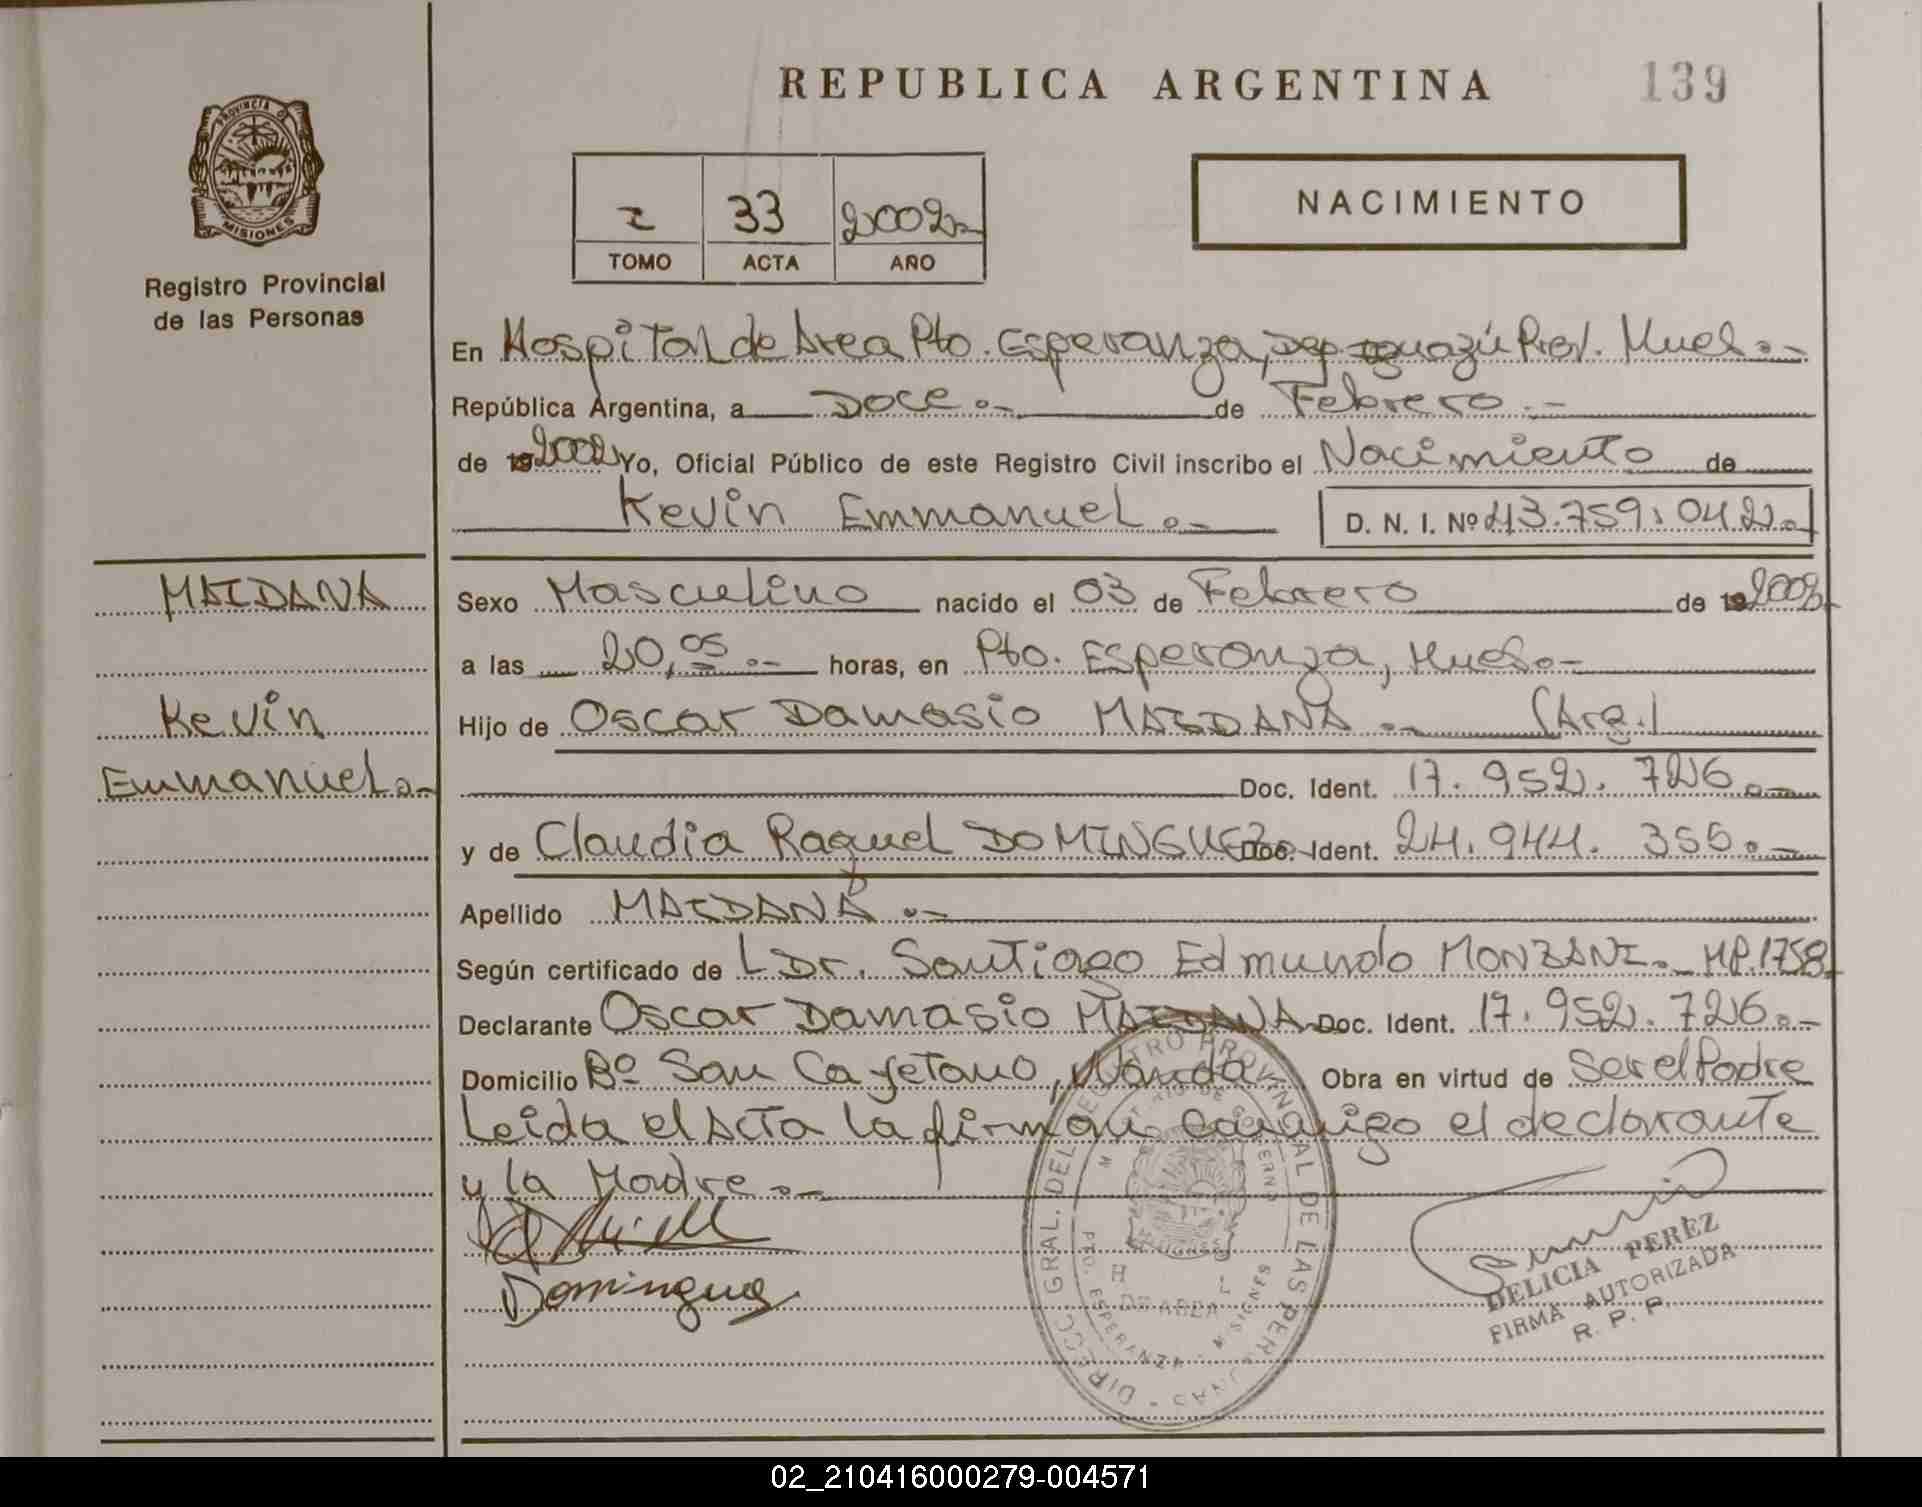 REPUBLICA ARGENTINA
139
PROVINCIA DE
MISIONES
Registro Provincial
de las Personas
33
2002
TOMO
ACTA
AÑO
NACIMIENTO
En Hospital de Area Pto. Esperanza, Dep. Iguazú Prov. Mnes.-
República Argentina, a Doce.- de Febrero.-
de 19 2002 Yo, Oficial Público de este Registro Civil inscribo el Nacimiento de
Kevin Emmanuel.-
D. N. I. Nº 43.759.042.-
MAIDANA
Kevin
Emmanuel.-
Sexo Masculino nacido el 03 de Febrero de 19 2002.-
a las 20,05.- horas, en Pto. Esperanza, Mnes.-
Hijo de Oscar Damasio MAIDANA.- (Arg.)
Doc. Ident. 17.952.726.-
y de Claudia Raquel DOMINGUEZ Doc. Ident. 24.944.355.-
Apellido MAIDANA.-
Según certificado de Dr. Santiago Edmundo MONZANI.- MP.1758
Declarante Oscar Damasio MAIDANA Doc. Ident. 17.952.726.-
Domicilio Bº San Cayetano, Wanda Obra en virtud de Ser el Padre
Leida el Acta la firman conmigo el declarante
y la Madre.-
DIRECC. GRAL. DEL REGISTRO PROVINCIAL DE LAS PERSONAS
DE AREA
PTO. ESPERANZA - MISIONES
DELICIA PEREZ
FIRMA AUTORIZADA
R. P. P.
02_210416000279-004571